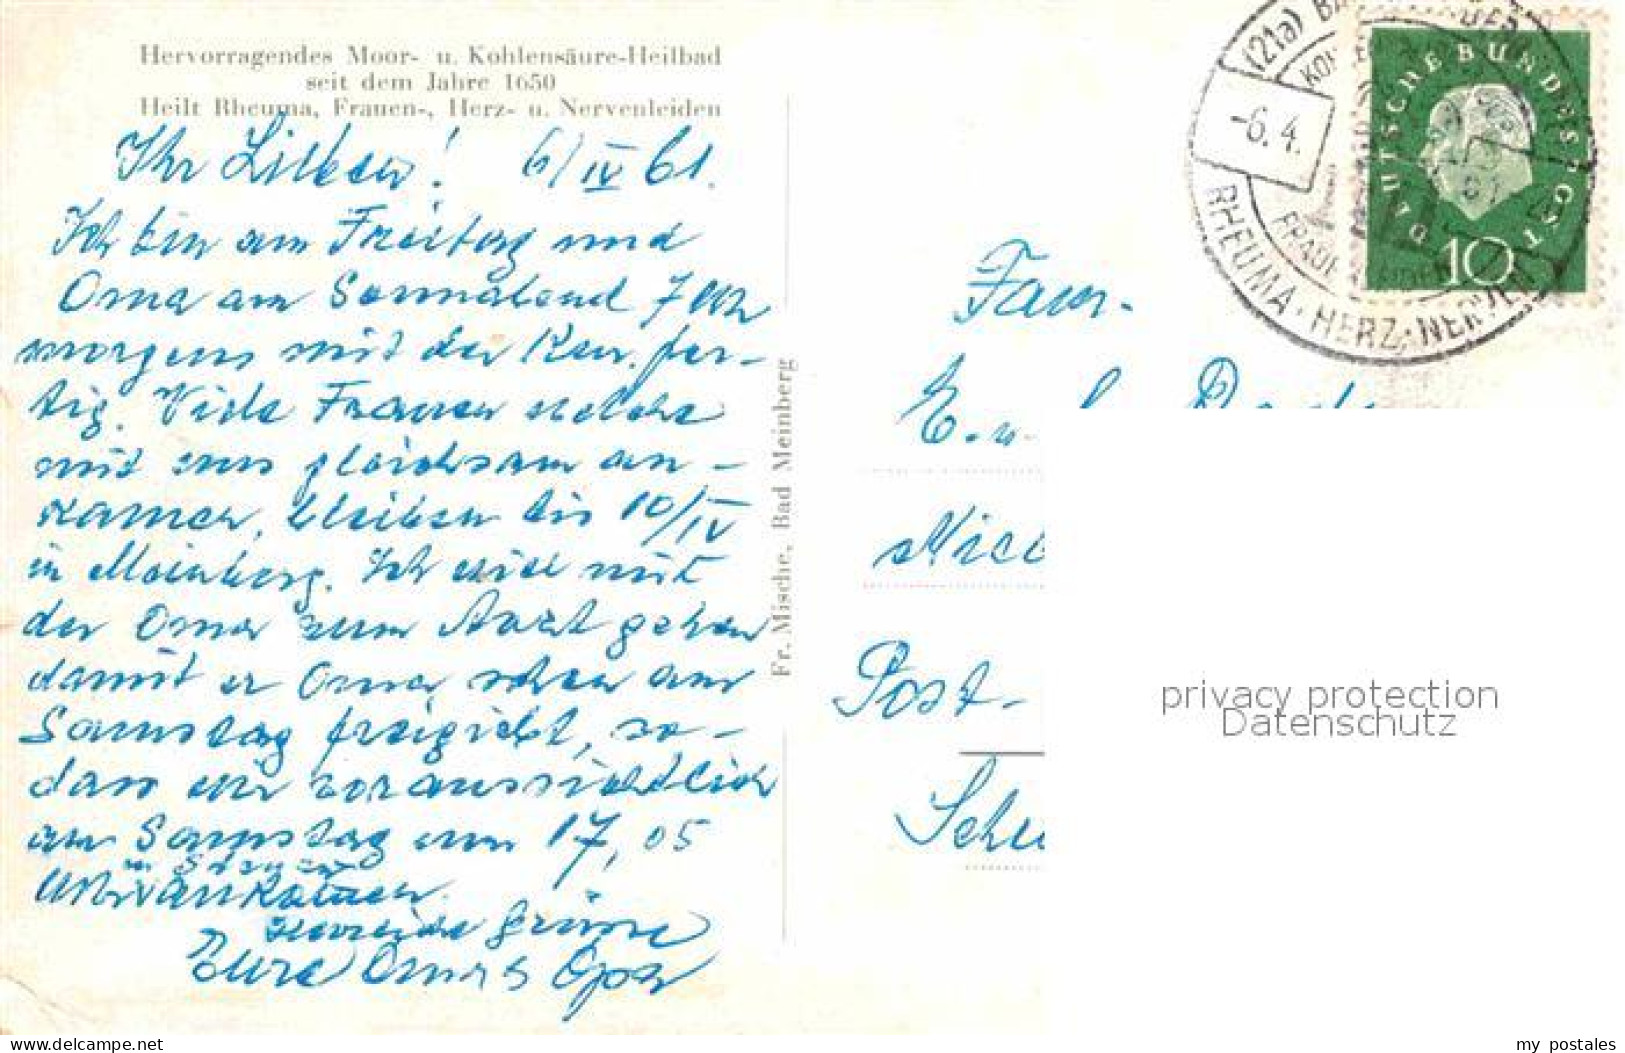 Hervorragendes Moor- u. Kohlensäure-Heilbad
seit dem Jahre 1650
Heilt Rheuma, Frauen-, Herz- u. Nervenleiden
Ihr Lieben! 6/IV 61.
Ich bin am Freitag und
Oma am Sonnabend 7 Uhr
morgens mit der Kur fer-
tig. Viele Frauen welche
mit uns gleichsam an-
kamen, bleiben bis 10/IV
in Meinberg. Ich will mit
der Oma zum Arzt gehen
damit er Oma schon am
Samstag freigiebt, so-
dass wir voraussichtlich
am Samstag um 17,05
Uhr ankommen.
Herzliche Grüsse
Eure Oma u Opa
Fr. Mische, Bad Meinberg
(21a) BAD
-6.4.
61
RHEUMA·HERZ·NERVEN
DEUTSCHE BUNDESPOST
10
Fam.
E. u.
Post-
Schu
privacy protection
Datenschutz
my postales
www.delcampe.net